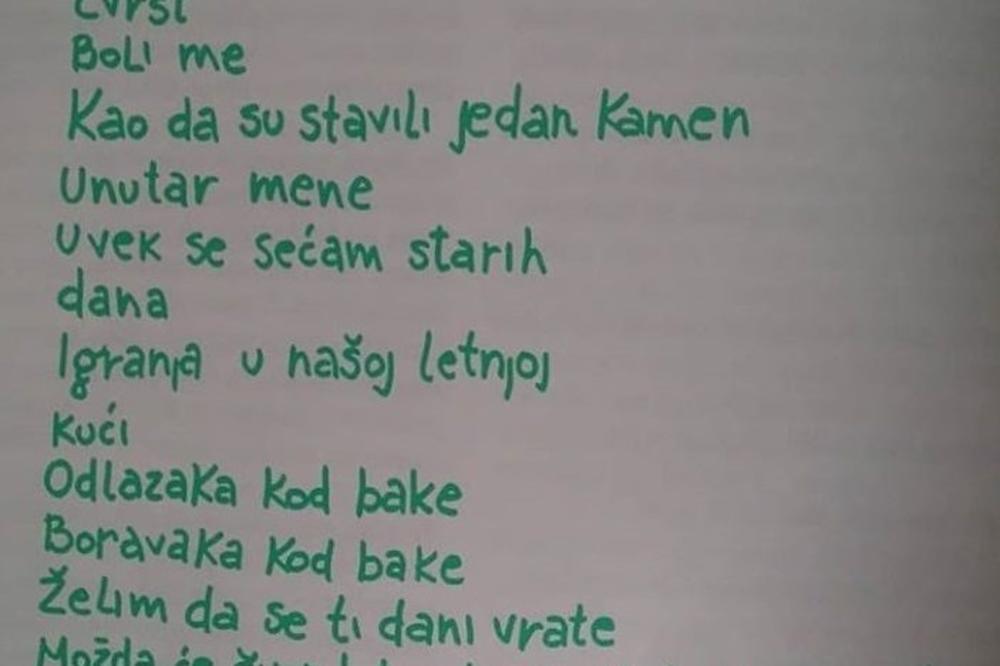 Čvrst
Boli me
Kao da su stavili jedan kamen
Unutar mene
Uvek se sećam starih
dana
Igranja u našoj letnjoj
kući
Odlazaka kod bake
Boravaka kod bake
Želim da se ti dani vrate
Možda je